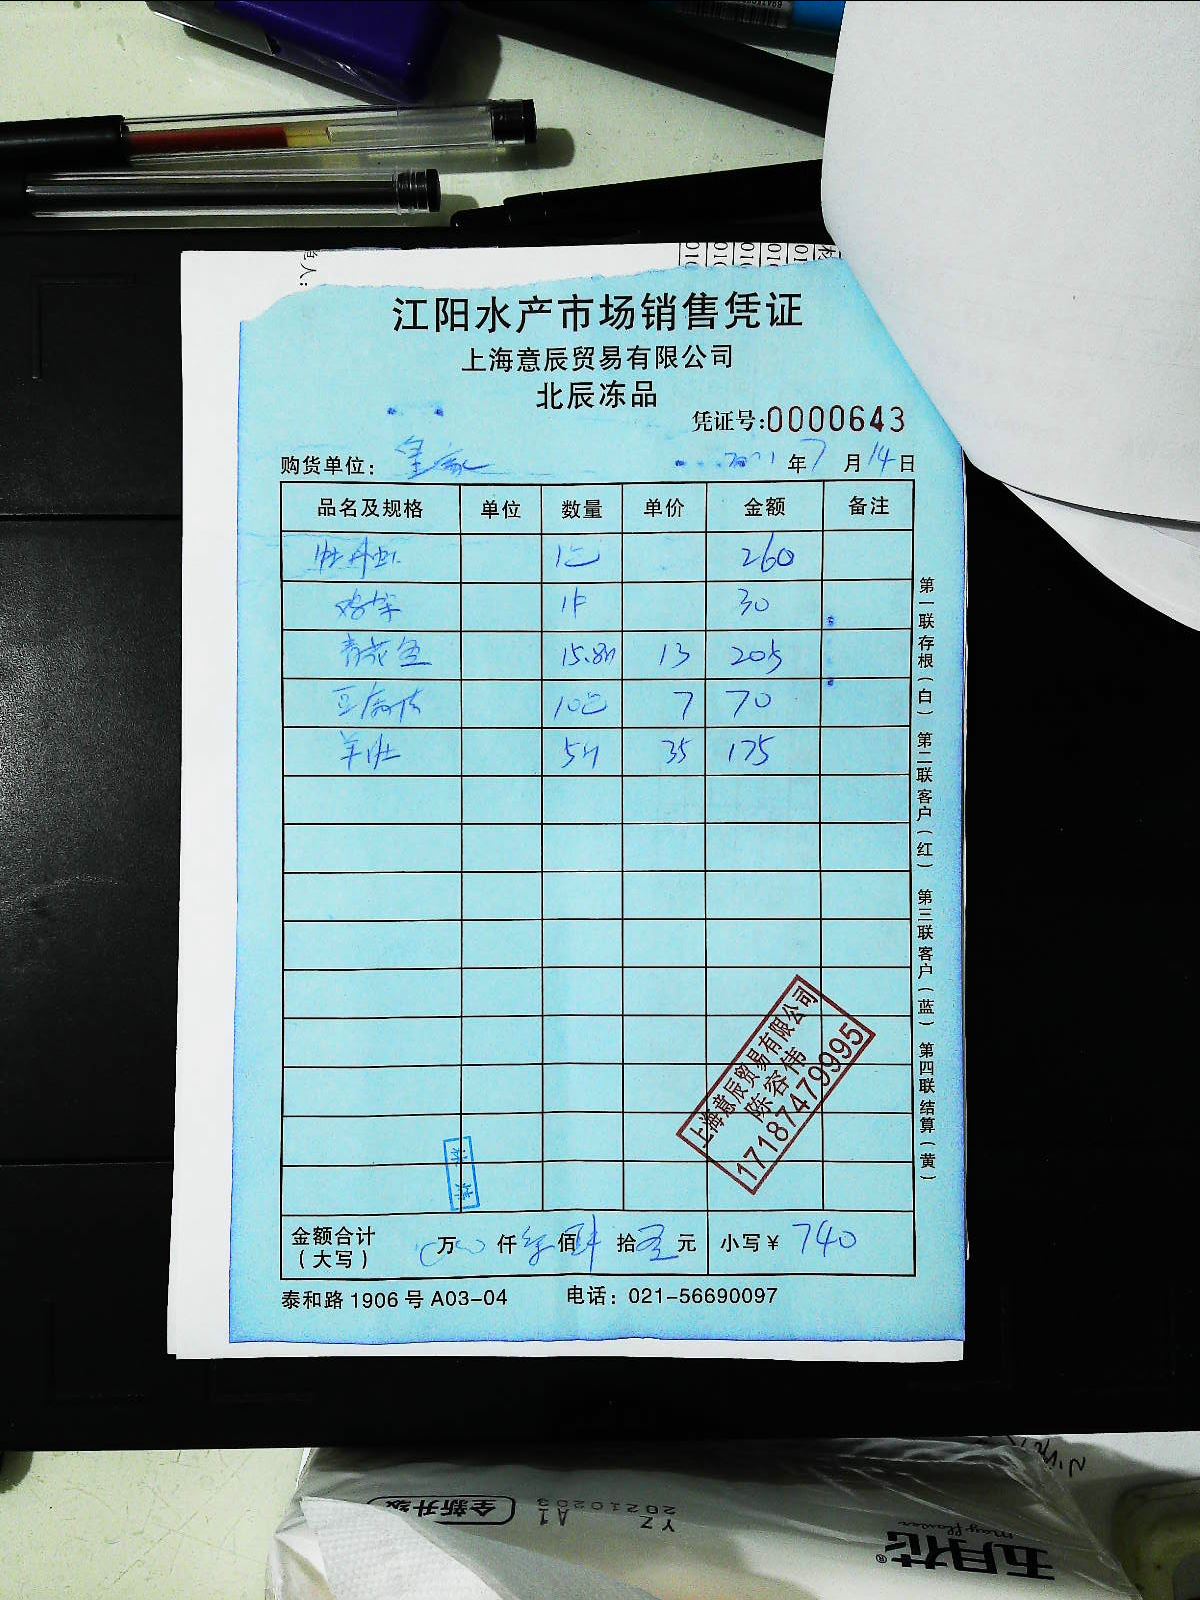 江阳水产市场销售凭证
上海意辰贸易有限公司
北辰冻品
凭证号:0000643
购货单位: 皇家
2021年7月14日
品名及规格 单位 数量 单价 金额 备注
牡丹虾 1包 260
鸡米 1件 30
青花鱼 15.8斤 13 205
豆腐皮 10包 7 70
羊肚 5斤 35 175
第一联存根(白) 第二联客户(红) 第三联客户(蓝) 第四联结算(黄)
上海意辰贸易有限公司
陈容伟
17187479995
金额合计(大写) 万 仟 佰肆 拾 元 小写¥ 740
泰和路1906号A03-04 电话: 021-56690097
全新升级
20210203 A1
YZ
五月花®
may flower